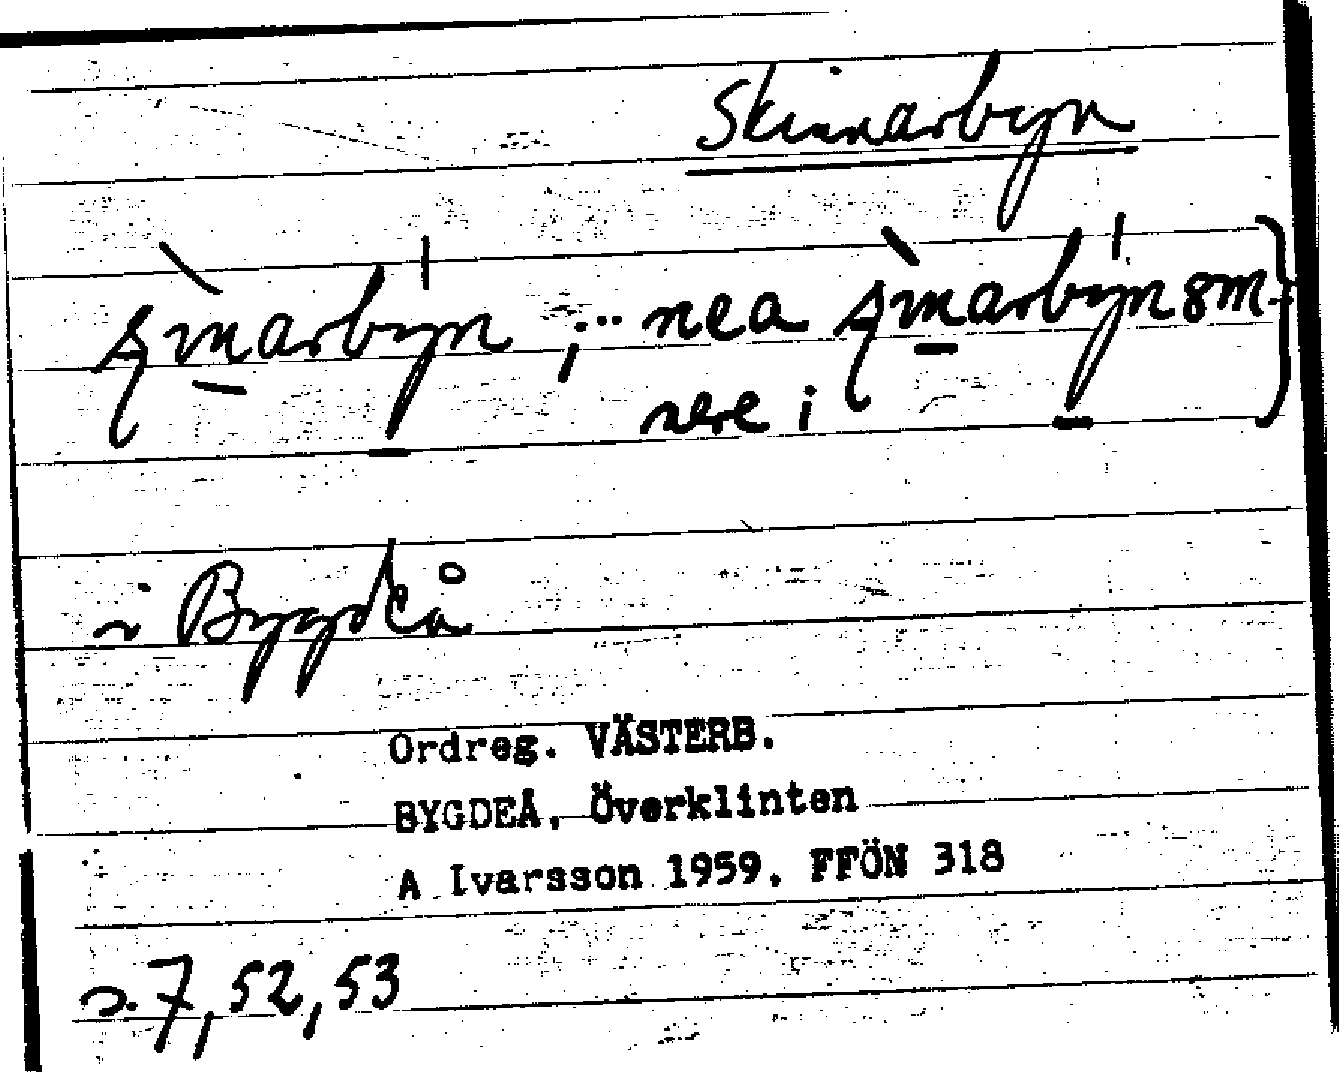 Skinnarbyn
nea
nere i
i Bygdeå
Ordreg. VÄSTERB.
BYGDEÅ, Överklinten
A Ivarsson 1959, FFÖN 318
s. 7, 52, 53